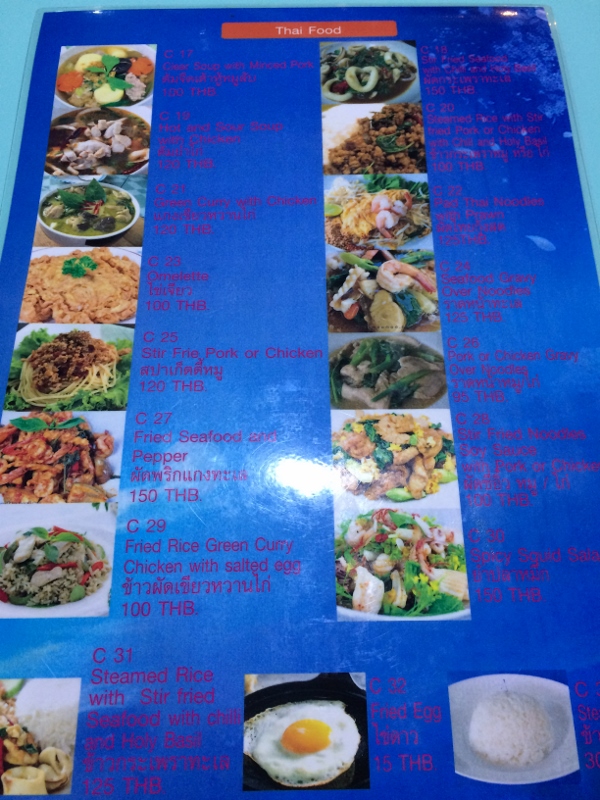 Thai Food
C 17
Clear Soup with Minced Pork
100 THB
C 19
Hot and Sour Soup
with Chicken
120 THB.
C 21
Green Curry with Chicken
แกงเขียวหวานไก่
120 THB.
C 23
Omelette
ไข่เจียว
100 THB.
C 25
Stir Frie Pork or Chicken
สปาเก็ตตี้หมู
120 THB.
C 27
Fried Seafood and
Pepper
ผัดพริกแกงทะเล
150 THB.
C 29
Fried Rice Green Curry
Chicken with salted egg
ข้าวผัดเขียวหวานไก่
100 THB.
C 18
Stir Fried Seafood
ผัดกระเพราทะเล
150 THB.
C 20
Steamed Rice with Stir
fried Pork or Chicken
with Chili and Holy Basil
100 THB.
C 22
Pad Thai Noodles
with Prawn
C 24
Seafood Gravy
Over Noodles
ราดหน้าทะเล
125 THB.
C 26
Pork or Chicken Gravy
Over Noodles
ราดหน้าหมู/ไก่
95 THB.
Stir Fried Noodles
Soy Sauce
with Pork or Chicken
ผัดซีอิ๊ว หมู / ไก่
100 THB.
C 30
Spicy Squid Sala
ยำปลาหมึก
150 THB.
C 31
Steamed Rice
with Stir fried
Seafood with chili
and Holy Basil
ข้าวกระเพราทะเล
125 THB.
C 32
Fried Egg
ไข่ดาว
15 THB.
C 3
Ste
ข้า
30